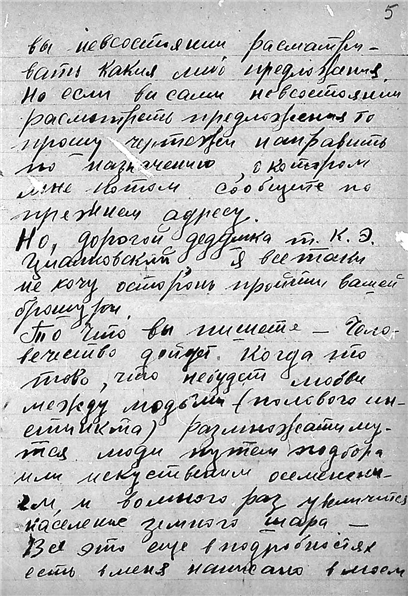 5
вы невсостоянии расматри-
вать какия либо предложения.
Но если вы сами невсостоянии
расмотреть предложения то
прошу чертежи направить
по назначению, о котором
мне потом сообщите по
прежнем адресу.
Но, дорогой дедушка т. К. Э.
Циалковский, я всетаки
не хочу осторонь пройти вашей
брошуры.
То что вы пишете — Чело-
вечество дойдет когда то
тово, что небудет любви
между людьми (полового ин-
стинкта) размножатиму-
тся люди путем подбора
или искуственим осеменени-
ем, и вомного раз увеличится
население земного шара —
Все это еще в подробностях
есть вменя написано в моем